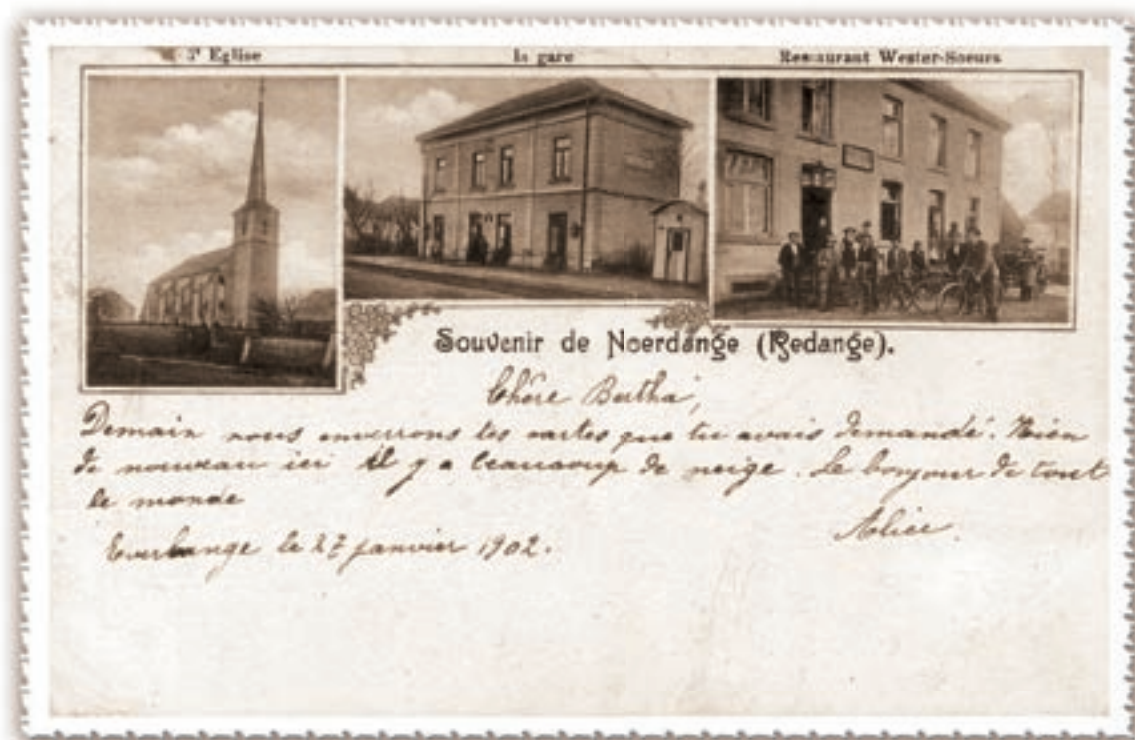 l'Eglise
la gare
Restaurant Wester-Soeurs
Souvenir de Noerdange (Redange).
Chère Bertha,
Demain nous enverrons les cartes que tu avais demandé. Rien
de nouveau ici il y a beaucoup de neige. Le bonjour de tout
le monde
Alice.
Everlange le 27 janvier 1902.